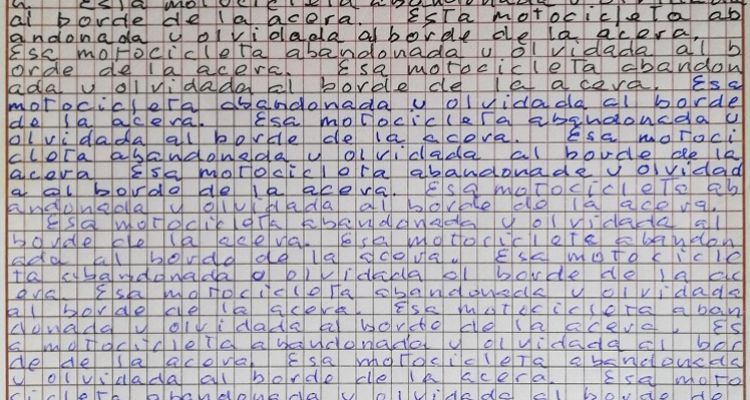 a. Esta motocicleta abandonada y olvidada
al borde de la acera. Esta motocicleta ab
andonada y olvidada al borde de la acera.
Esa motocicleta abandonada y olvidada al b
orde de la acera. Esa motocicleta abandon
ada y olvidada al borde de la acera. Esa
motocicleta abandonada y olvidada al borde
de la acera. Esa motocicleta abandonada y
olvidada al borde de la acera. Esa motoci
cleta abandonada y olvidada al borde de la
acera Esa motocicleta abandonada y olvidad
a al borde de la acera. Esa motocicleta ab
andonada y olvidada al borde de la acera.
Esa motocicleta abandonada y olvidada al
borde de la acera. Esa motocicleta abandon
ada al borde de la acera. Esa motocicle
ta abandonada o olvidada al borde de la ac
era. Esa motocicleta abandonada y olvidada
al borde de la acera. Esa motocicleta aban
donada y olvidada al borde de la acera. Es
a motocicleta abandonada y olvidada al bor
de de la acera. Esa motocicleta abandonada
y olvidada al borde de la acera. Esa moto
cicleta abandonada y olvidada al borde de